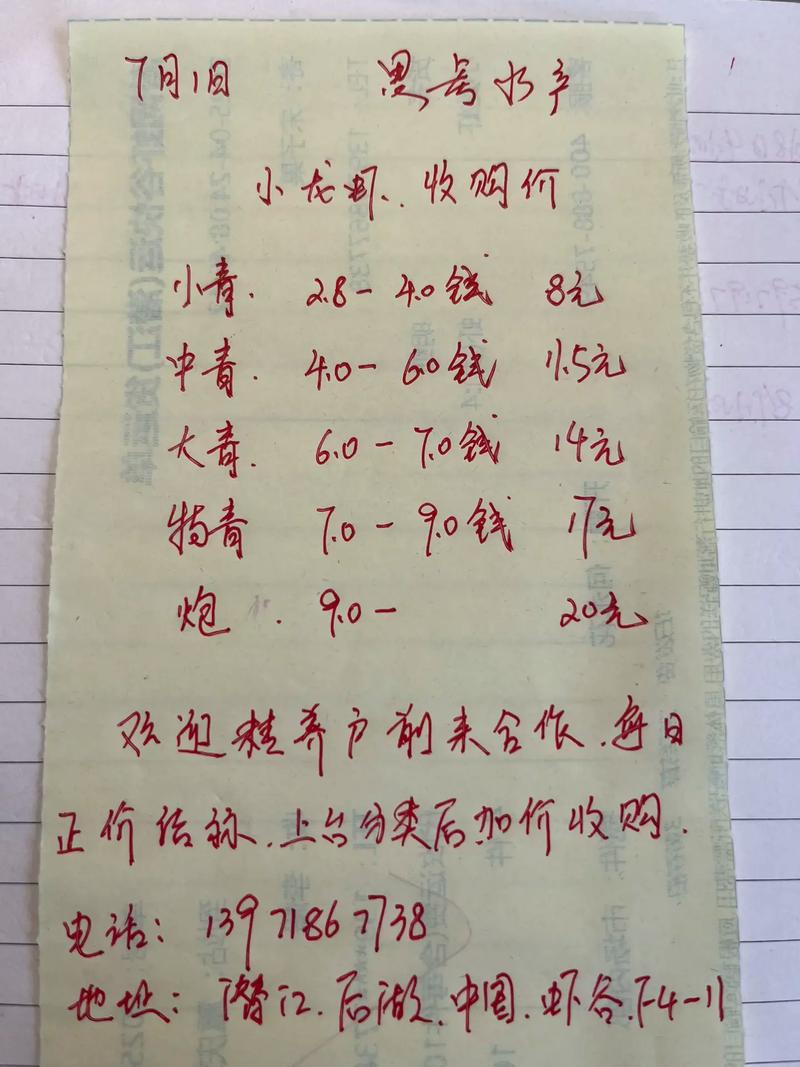 7月1日 思号水产
小龙虾. 收购价
小青. 2.8-4.0钱 8元
中青. 4.0-6.0钱 11.5元
大青. 6.0-7.0钱 14元
特青 7.0-9.0钱 17元
炮. 9.0- 20元
欢迎精养户前来合作.每日
正价结称.上台分类后加价收购.
电话: 13971867738
地址: 潜江.后湖.中国.虾谷.F-4-11